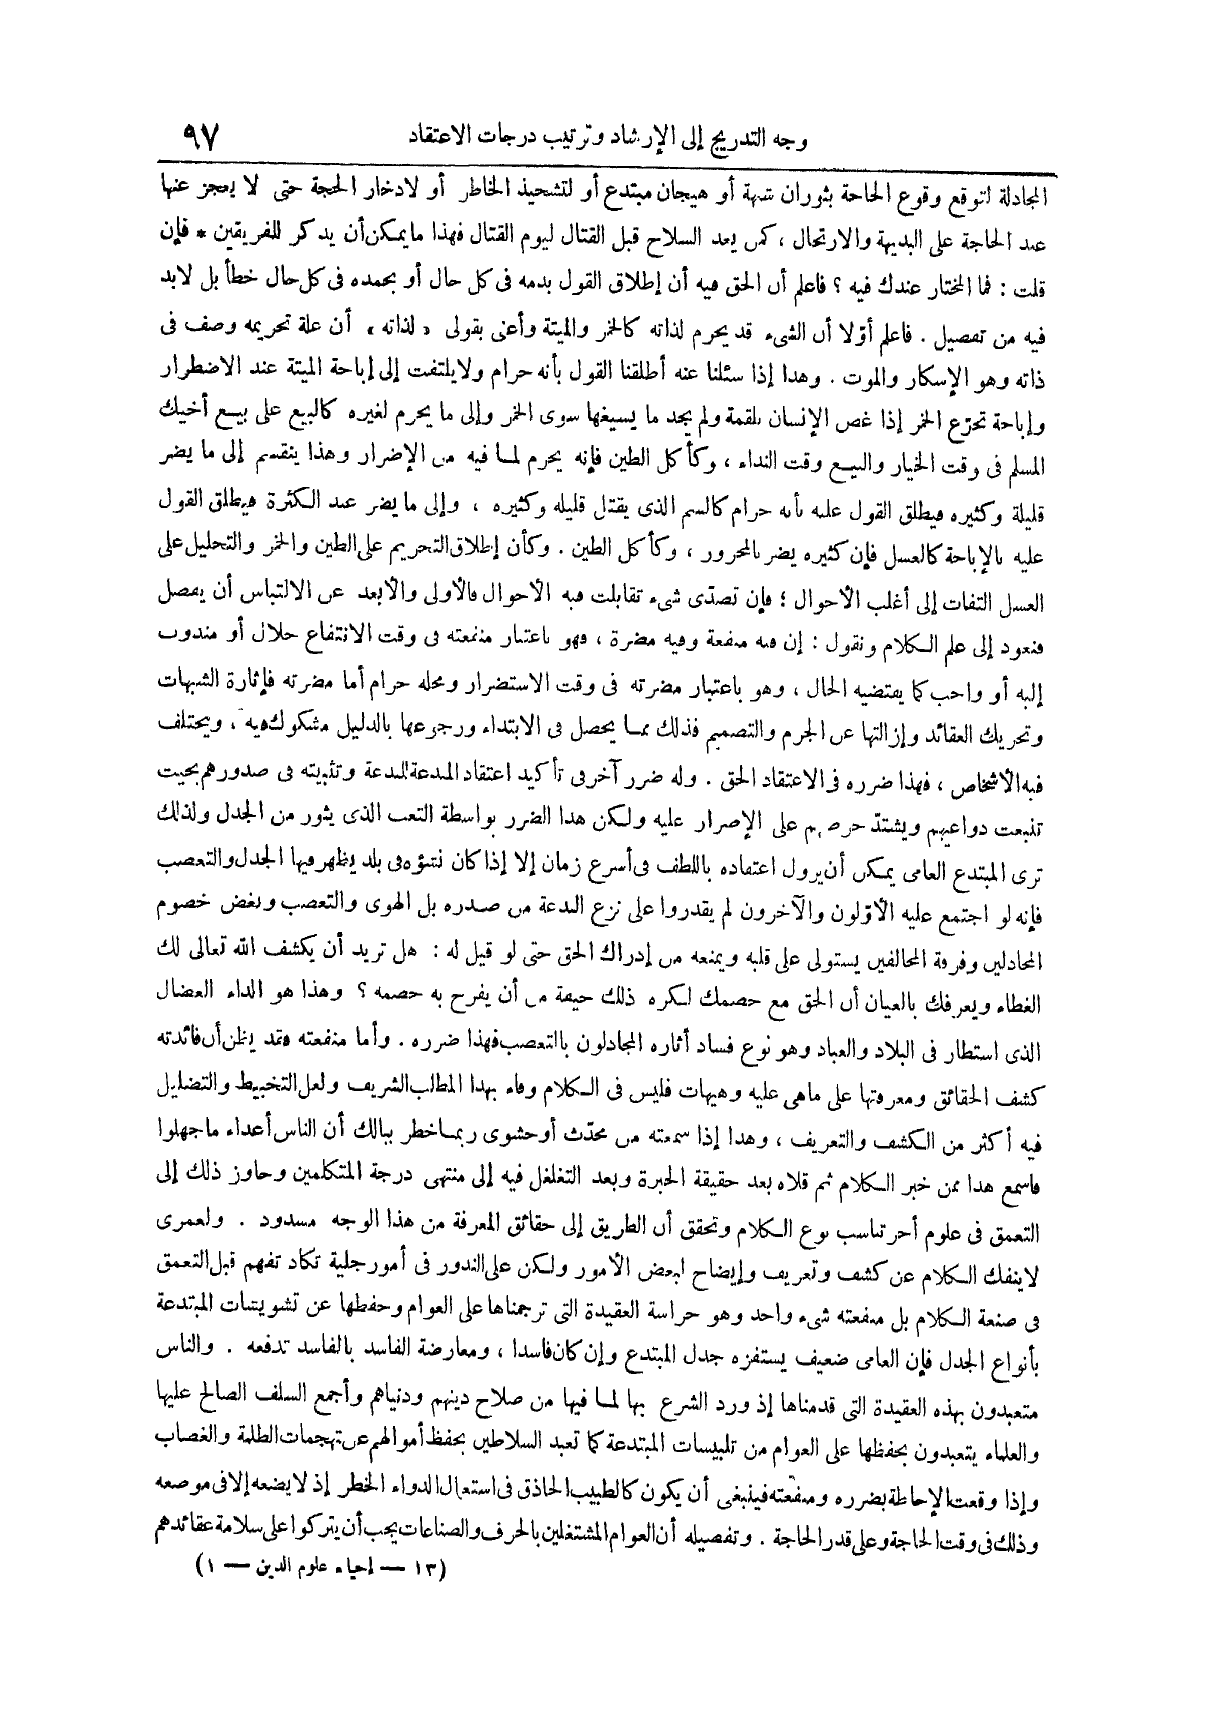 وجه التدريج إلى الإرشاد وترتيب درجات الاعتقاد ٩٧
المجادلة لتوقع وقوع الحاجة بثوران شبهة أو هيجان مبتدع أو لتشحيذ الخاطر أو لادخار الحجة حتى لا يعجز عنها
عند الحاجة على البديهة والارتجال ، كمن يعد السلاح قبل القتال ليوم القتال فهذا ما يمكن أن يذكر للفريقين * فإن
قلت : فما المختار عندك فيه ؟ فاعلم أن الحق فيه أن إطلاق القول بذمه فى كل حال أو بحمده فى كل حال خطأ بل لابد
فيه من تفصيل . فاعلم أوّلا أن الشىء قد يحرم لذاته كالخمر والميتة وأعنى بقولى « لذاته » أن علة تحريمه وصف فى
ذاته وهو الإسكار والموت . وهذا إذا سئلنا عنه أطلقنا القول بأنه حرام ولا يلتفت إلى إباحة الميتة عند الاضطرار
وإباحة تجرّع الخمر إذا غص الإنسان بلقمة ولم يجد ما يسيغها سوى الخمر وإلى ما يحرم لغيره كالبيع على بيع أخيك
المسلم فى وقت الخيار والبيع وقت النداء ، وكأكل الطين فإنه يحرم لما فيه من الإضرار وهذا ينقسم إلى ما يضر
قليلة وكثيره فيطلق القول عليه بأنه حرام كالسم الذى يقتل قليله وكثيره ، وإلى ما يضر عند الكثرة فيطلق القول
عليه بالإباحة كالعسل فإن كثيره يضر بالمحرور ، وكأكل الطين . وكأن إطلاق التحريم على الطين والخمر والتحليل على
العسل التفات إلى أغلب الأحوال ؛ فإن تصدّى شىء تقابلت فيه الأحوال فالأولى والأبعد عن الالتباس أن يفصل
فنعود إلى علم الكلام ونقول : إن فيه منفعة وفيه مضرة ، فهو باعتبار منفعته فى وقت الانتفاع حلال أو مندوب
إليه أو واجب كما يقتضيه الحال ، وهو باعتبار مضرته فى وقت الاستضرار ومحله حرام أما مضرته فإثارة الشبهات
وتحريك العقائد وإزالتها عن الجزم والتصميم فذلك مما يحصل فى الابتداء ورجوعها بالدليل مشكوك فيه ، ويختلف
فيه الأشخاص ، فهذا ضرره فى الاعتقاد الحق . وله ضرر آخر فى تأكيد اعتقاد المبتدعة للبدعة وتثبيته فى صدورهم بحيث
تنبعث دواعيهم ويشتدّ حرصهم على الإصرار عليه ولكن هذا الضرر بواسطة التعب الذى يثور من الجدل ولذلك
ترى المبتدع العامى يمكن أن يزول اعتقاده باللطف فى أسرع زمان إلا إذا كان نشؤه فى بلد يظهر فيها الجدل والتعصب
فإنه لو اجتمع عليه الأوّلون والآخرون لم يقدروا على نزع البدعة من صدره بل الهوى والتعصب وبغض خصوم
المجادلين وفرقة المخالفين يستولى على قلبه ويمنعه من إدراك الحق حتى لو قيل له : هل تريد أن يكشف الله تعالى لك
الغطاء ويعرفك بالعيان أن الحق مع خصمك لكره ذلك خيفة من أن يفرح به خصمه ؟ وهذا هو الداء العضال
الذى استطار فى البلاد والعباد وهو نوع فساد أثاره المجادلون بالتعصب فهذا ضرره . وأما منفعته فقد يظن أن فائدته
كشف الحقائق ومعرفتها على ماهى عليه وهيهات فليس فى الكلام وفاء بهذا المطلب الشريف ولعل التخبيط والتضليل
فيه أكثر من الكشف والتعريف ، وهذا إذا سمعته من محدّث أو حشوى ربما خطر ببالك أن الناس أعداء ما جهلوا
فاسمع هذا ممن خبر الكلام ثم قلاه بعد حقيقة الخبرة وبعد التغلغل فيه إلى منتهى درجة المتكلمين وجاوز ذلك إلى
التعمق فى علوم أخر تناسب نوع الكلام وتحقق أن الطريق إلى حقائق المعرفة من هذا الوجه مسدود . ولعمرى
لا ينفك الكلام عن كشف وتعريف وإيضاح لبعض الأمور ولكن على الندور فى أمور جلية تكاد تفهم قبل التعمق
فى صنعة الكلام بل منفعته شىء واحد وهو حراسة العقيدة التى ترجمناها على العوام وحفظها عن تشويشات المبتدعة
بأنواع الجدل فإن العامى ضعيف يستفزه جدل المبتدع وإن كان فاسدا ، ومعارضة الفاسد بالفاسد تدفعه . والناس
متعبدون بهذه العقيدة التى قدمناها إذ ورد الشرع بها لما فيها من صلاح دينهم ودنياهم وأجمع السلف الصالح عليها
والعلماء يتعبدون بحفظها على العوام من تلبيسات المبتدعة كما تعبد السلاطين بحفظ أموالهم عن تهجمات الظلمة والغصاب
وإذا وقعت الإحاطة بضرره ومنفعته فينبغى أن يكون كالطبيب الحاذق فى استعمال الدواء الخطر إذ لا يضعه إلا فى موضعه
وذلك فى وقت الحاجة وعلى قدر الحاجة . وتفصيله أن العوام المشتغلين بالحرف والصناعات يجب أن يتركوا على سلامة عقائدهم
(١٣ — إحياء علوم الدين — ١)